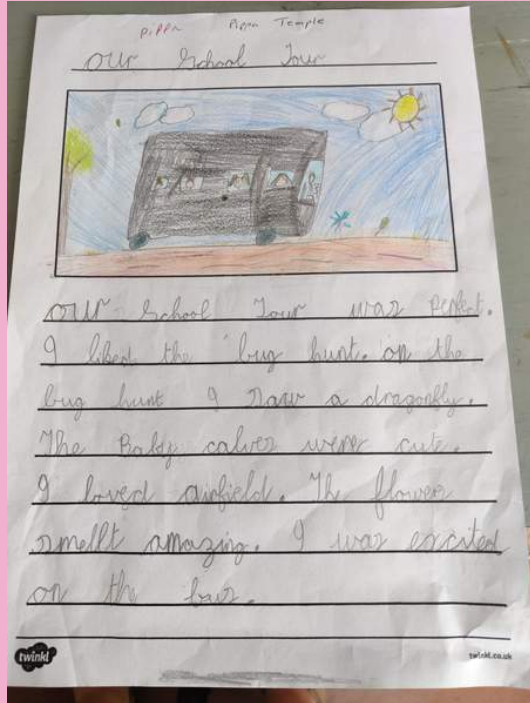 Pippa Pippa Temple
our School Tour
our School Tour was perfect.
I liked the bug hunt. on the
bug hunt I saw a dragonfly.
The Baby calves were cute.
I loved airfield. The flower
smellt amazing. I was excited
on the bus.
twinkl
twinkl.co.uk